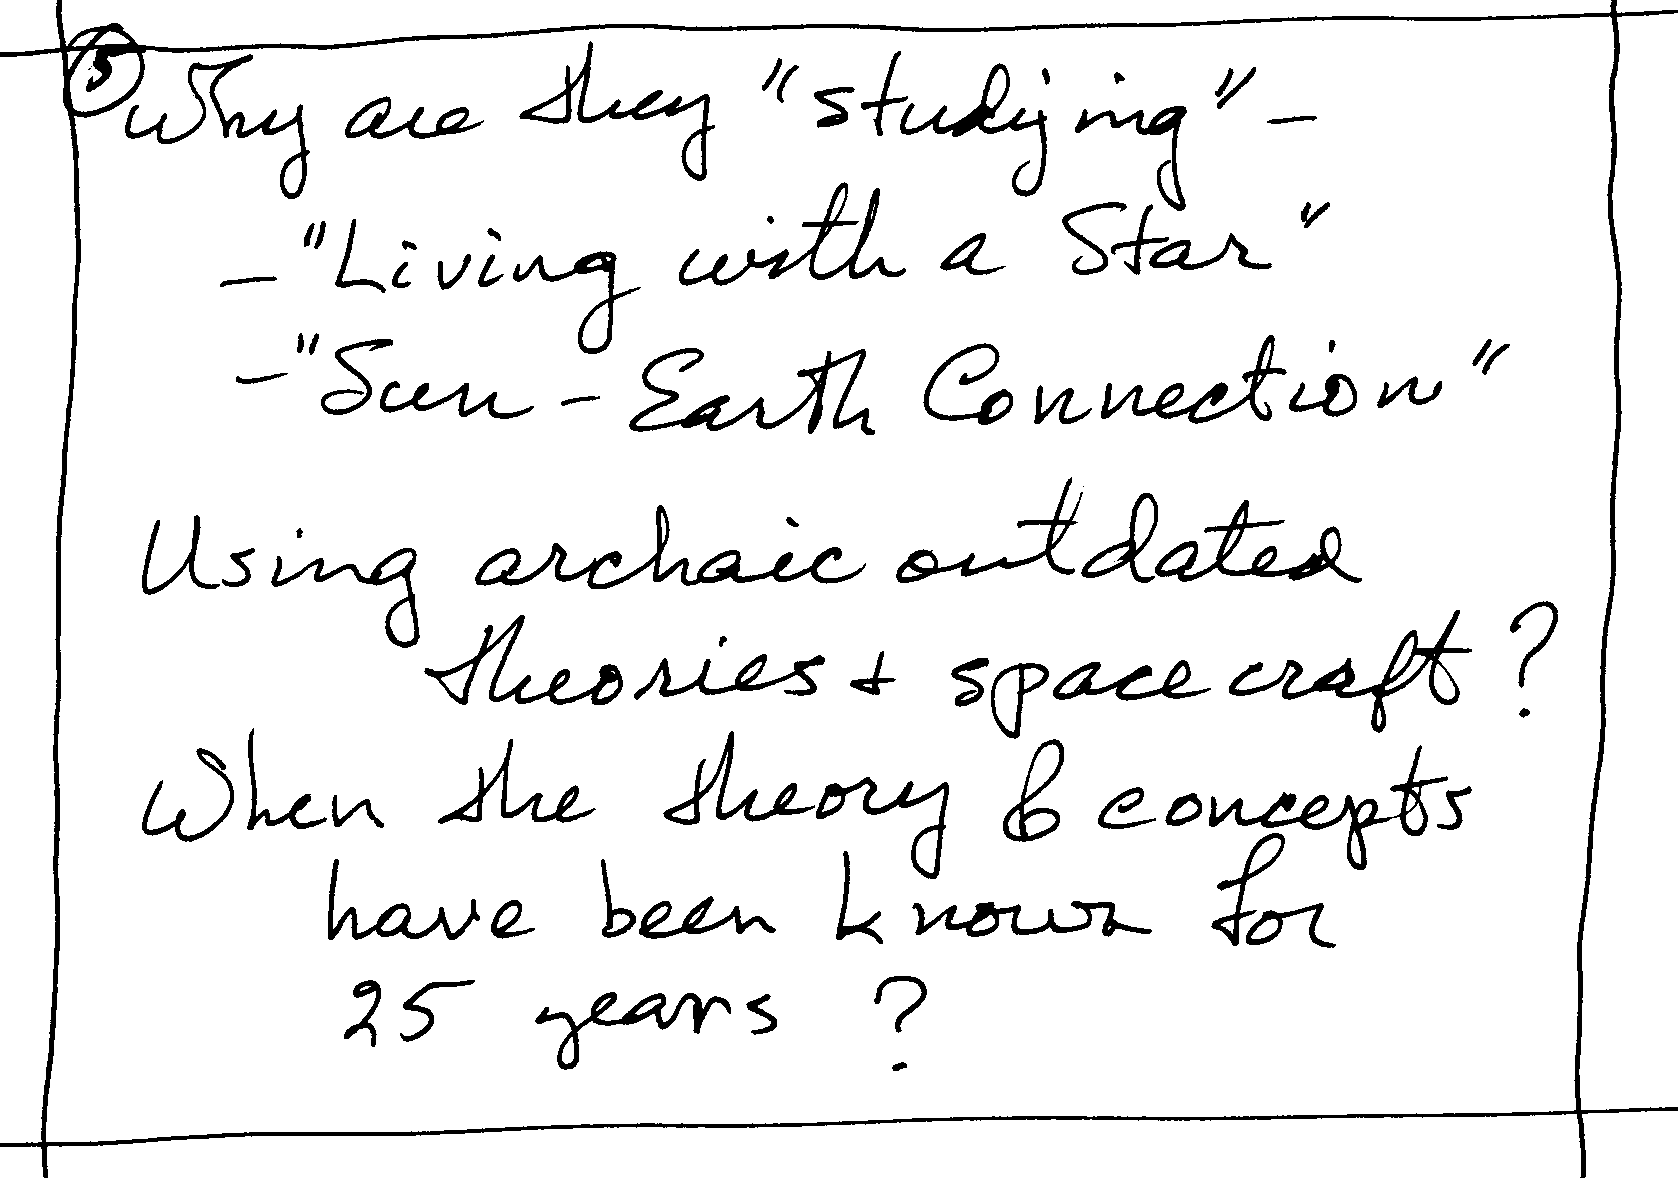 ⑤ Why are they "studying" -
- "Living with a Star"
- "Sun - Earth Connection"
Using archaic outdated
theories + spacecraft ?
When the theory & concepts
have been known for
25 years ?